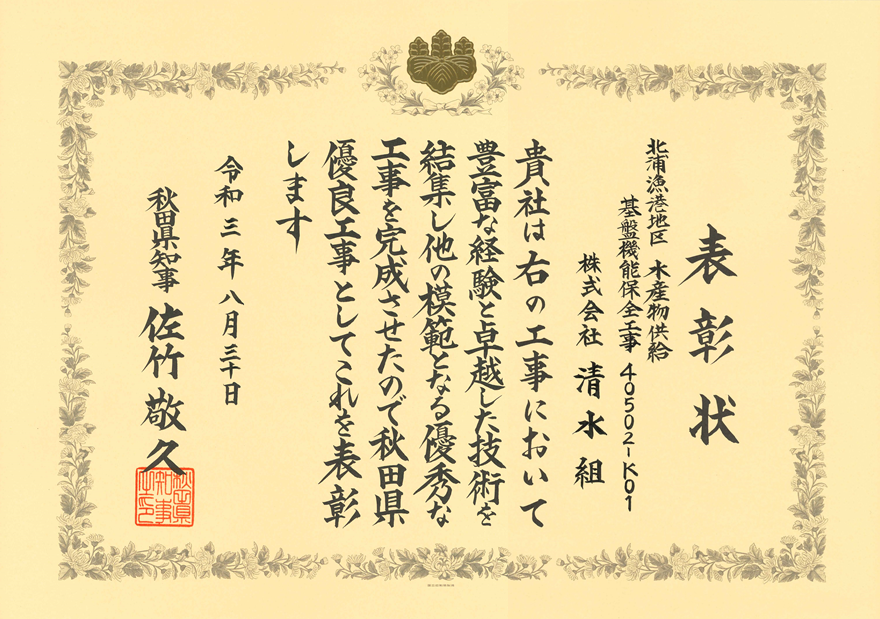 表彰状
北浦漁港地区 水産物供給
基盤機能保全工事 40502-K01
株式会社 清水組
貴社は右の工事において
豊富な経験と卓越した技術を
結集し他の模範となる優秀な
工事を完成させたので秋田県
優良工事としてこれを表彰
します
令和三年八月三十日
秋田県知事 佐竹敬久
秋田県知事之印